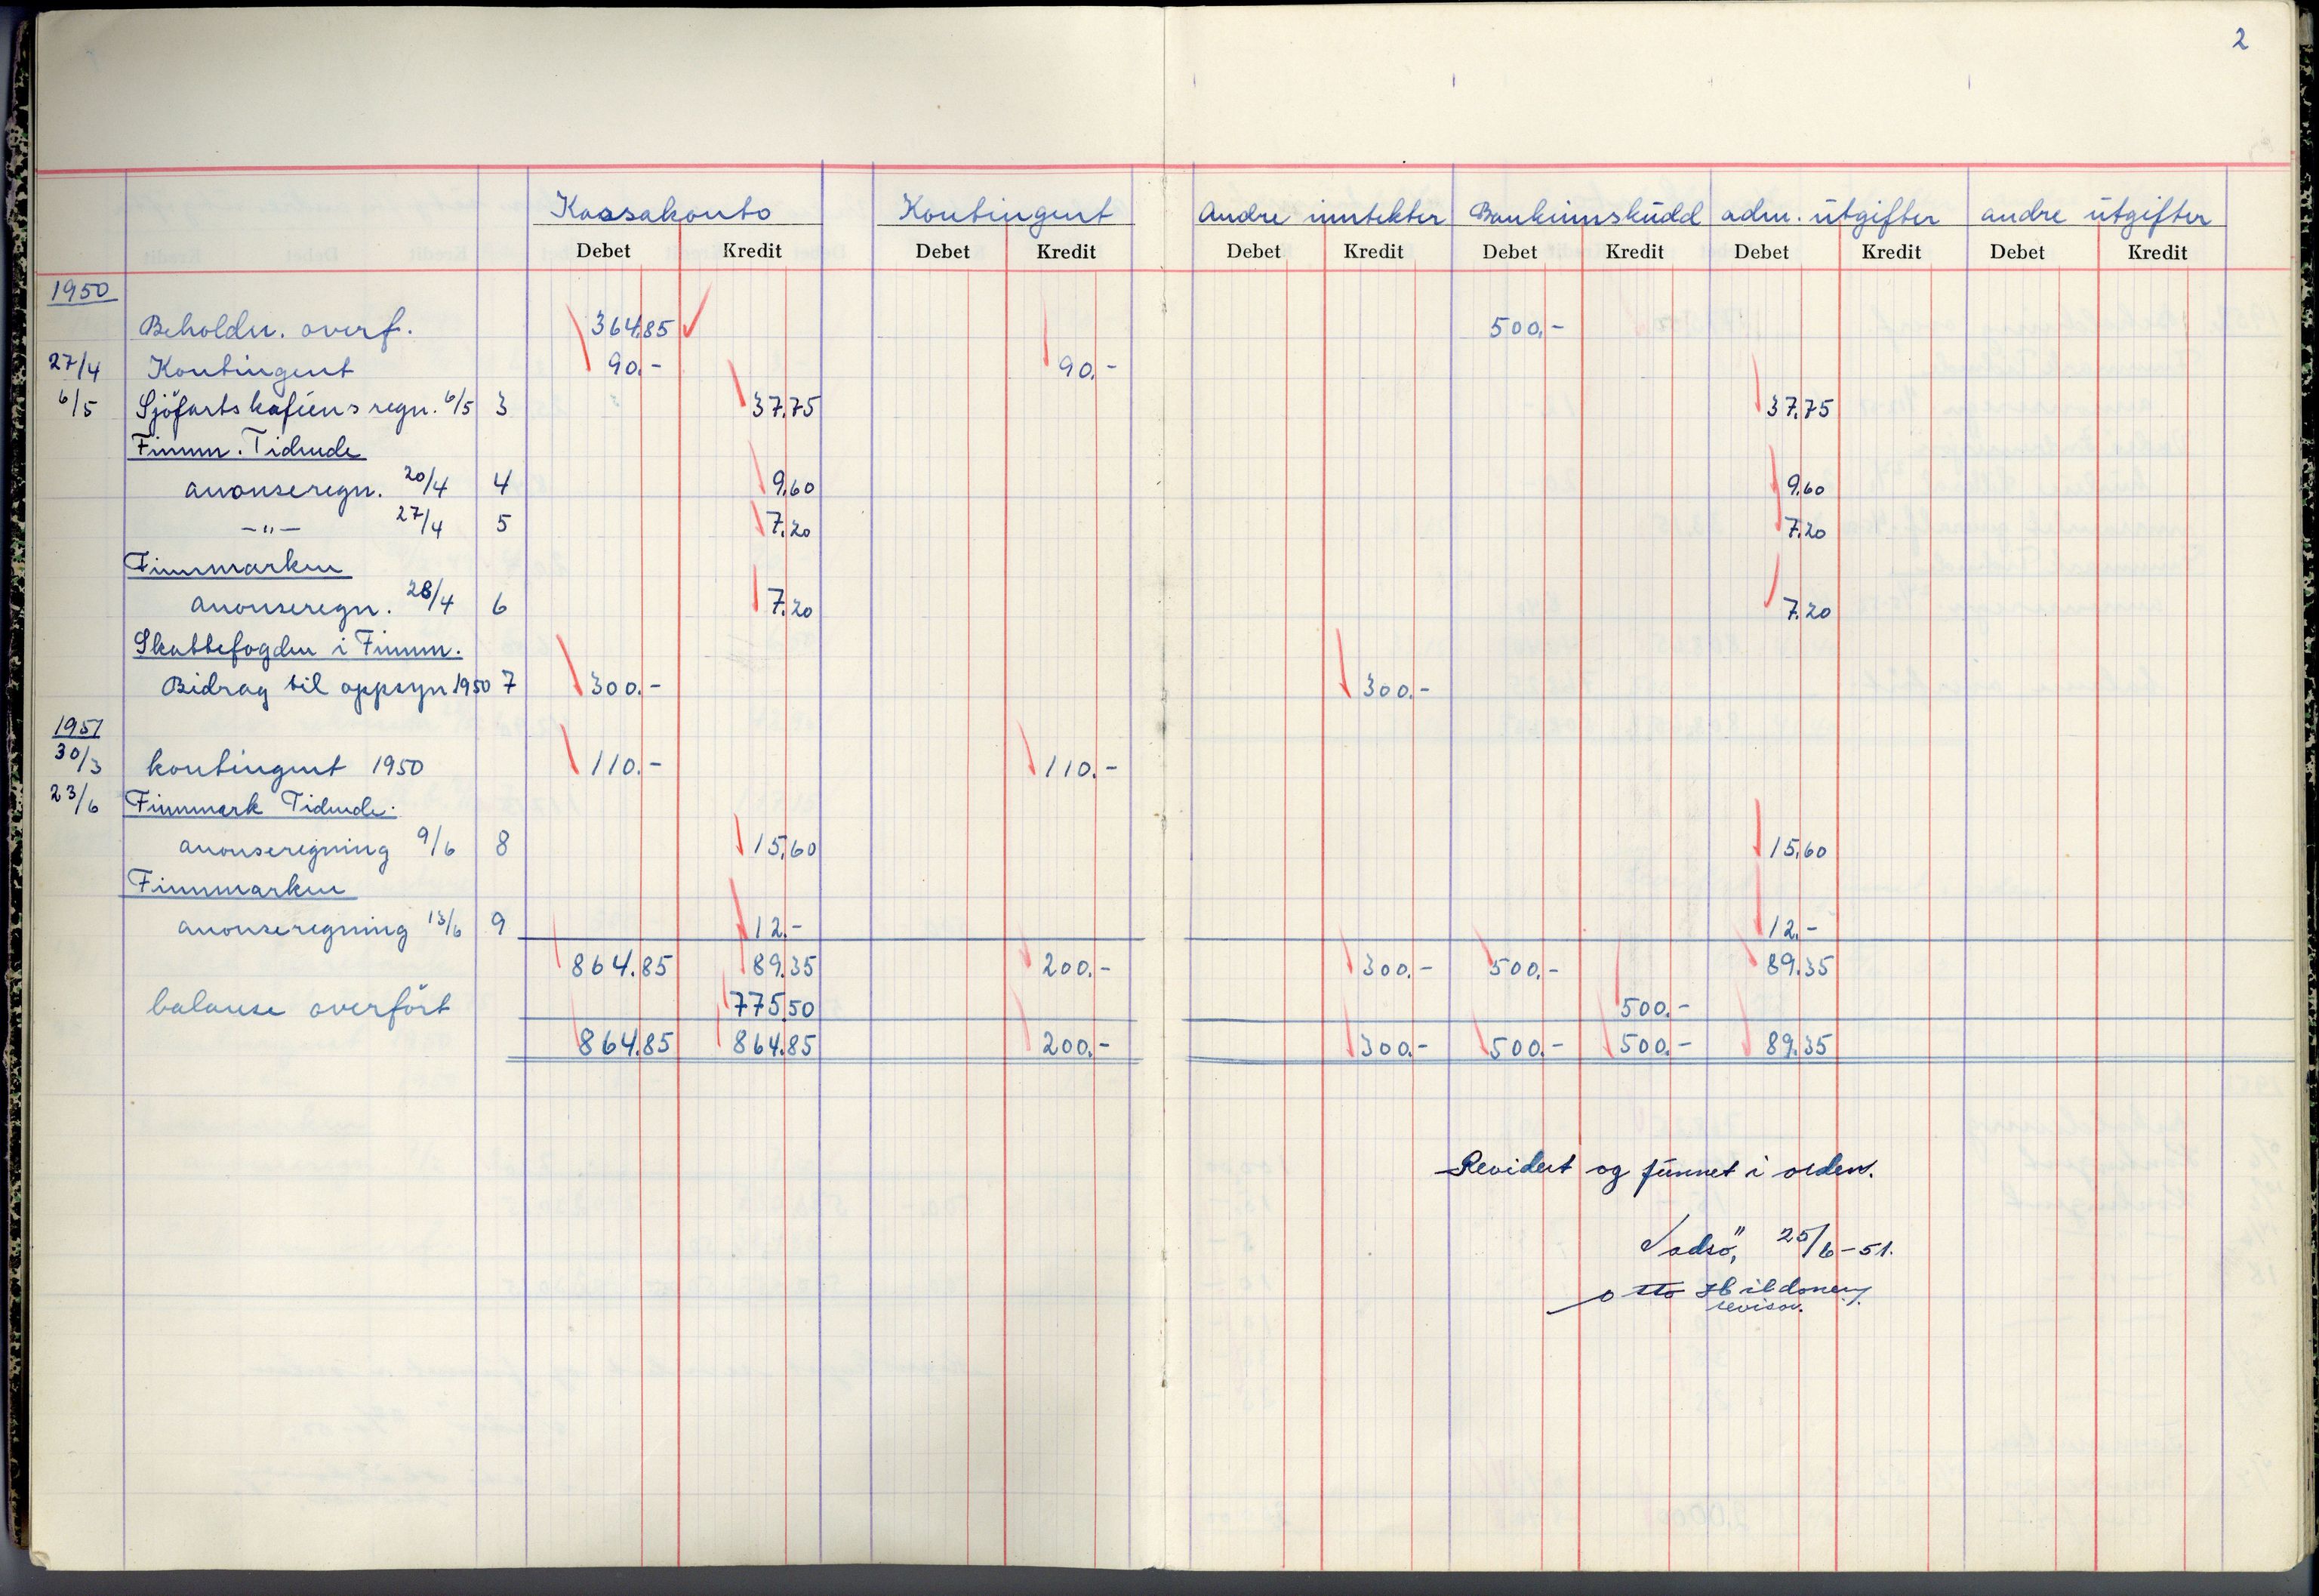 2
Kassakonto Kontingent Andre inntekter Bankinnskudd adm. utgifter andre utgifter
Debet Kredit Debet Kredit Debet Kredit Debet Kredit Debet Kredit Debet Kredit
1950
Beholdn. overf. 364.85 500,-
27/4 Kontingent 90.- 90.-
6/5 Sjöfartskafeens regn. 6/5 3 37.75 37.75
Finnm. Tidende
anonseregn. 20/4 4 9.60 9.60
-"- 27/4 5 7.20 7.20
Finnmarken
anonseregn. 28/4 6 7.20 7.20
Skattefogden i Finnm.
Bidrag til oppsyn 1950 7 300.- 300.-
1951
30/3 kontingent 1950 110.- 110.-
23/6 Finnmark Tidende.
anonseregning 9/6 8 15,60 15,60
Finnmarken
anonseregning 13/6 9 12.- 12,-
864.85 89.35 200.- 300.- 500,- 89.35
balanse overfört 775.50 500.-
864.85 864.85 200.- 300.- 500.- 500.- 89.35
Revidert og funnet i orden.
Vadsö, 25/6-51.
Otto
revisor.